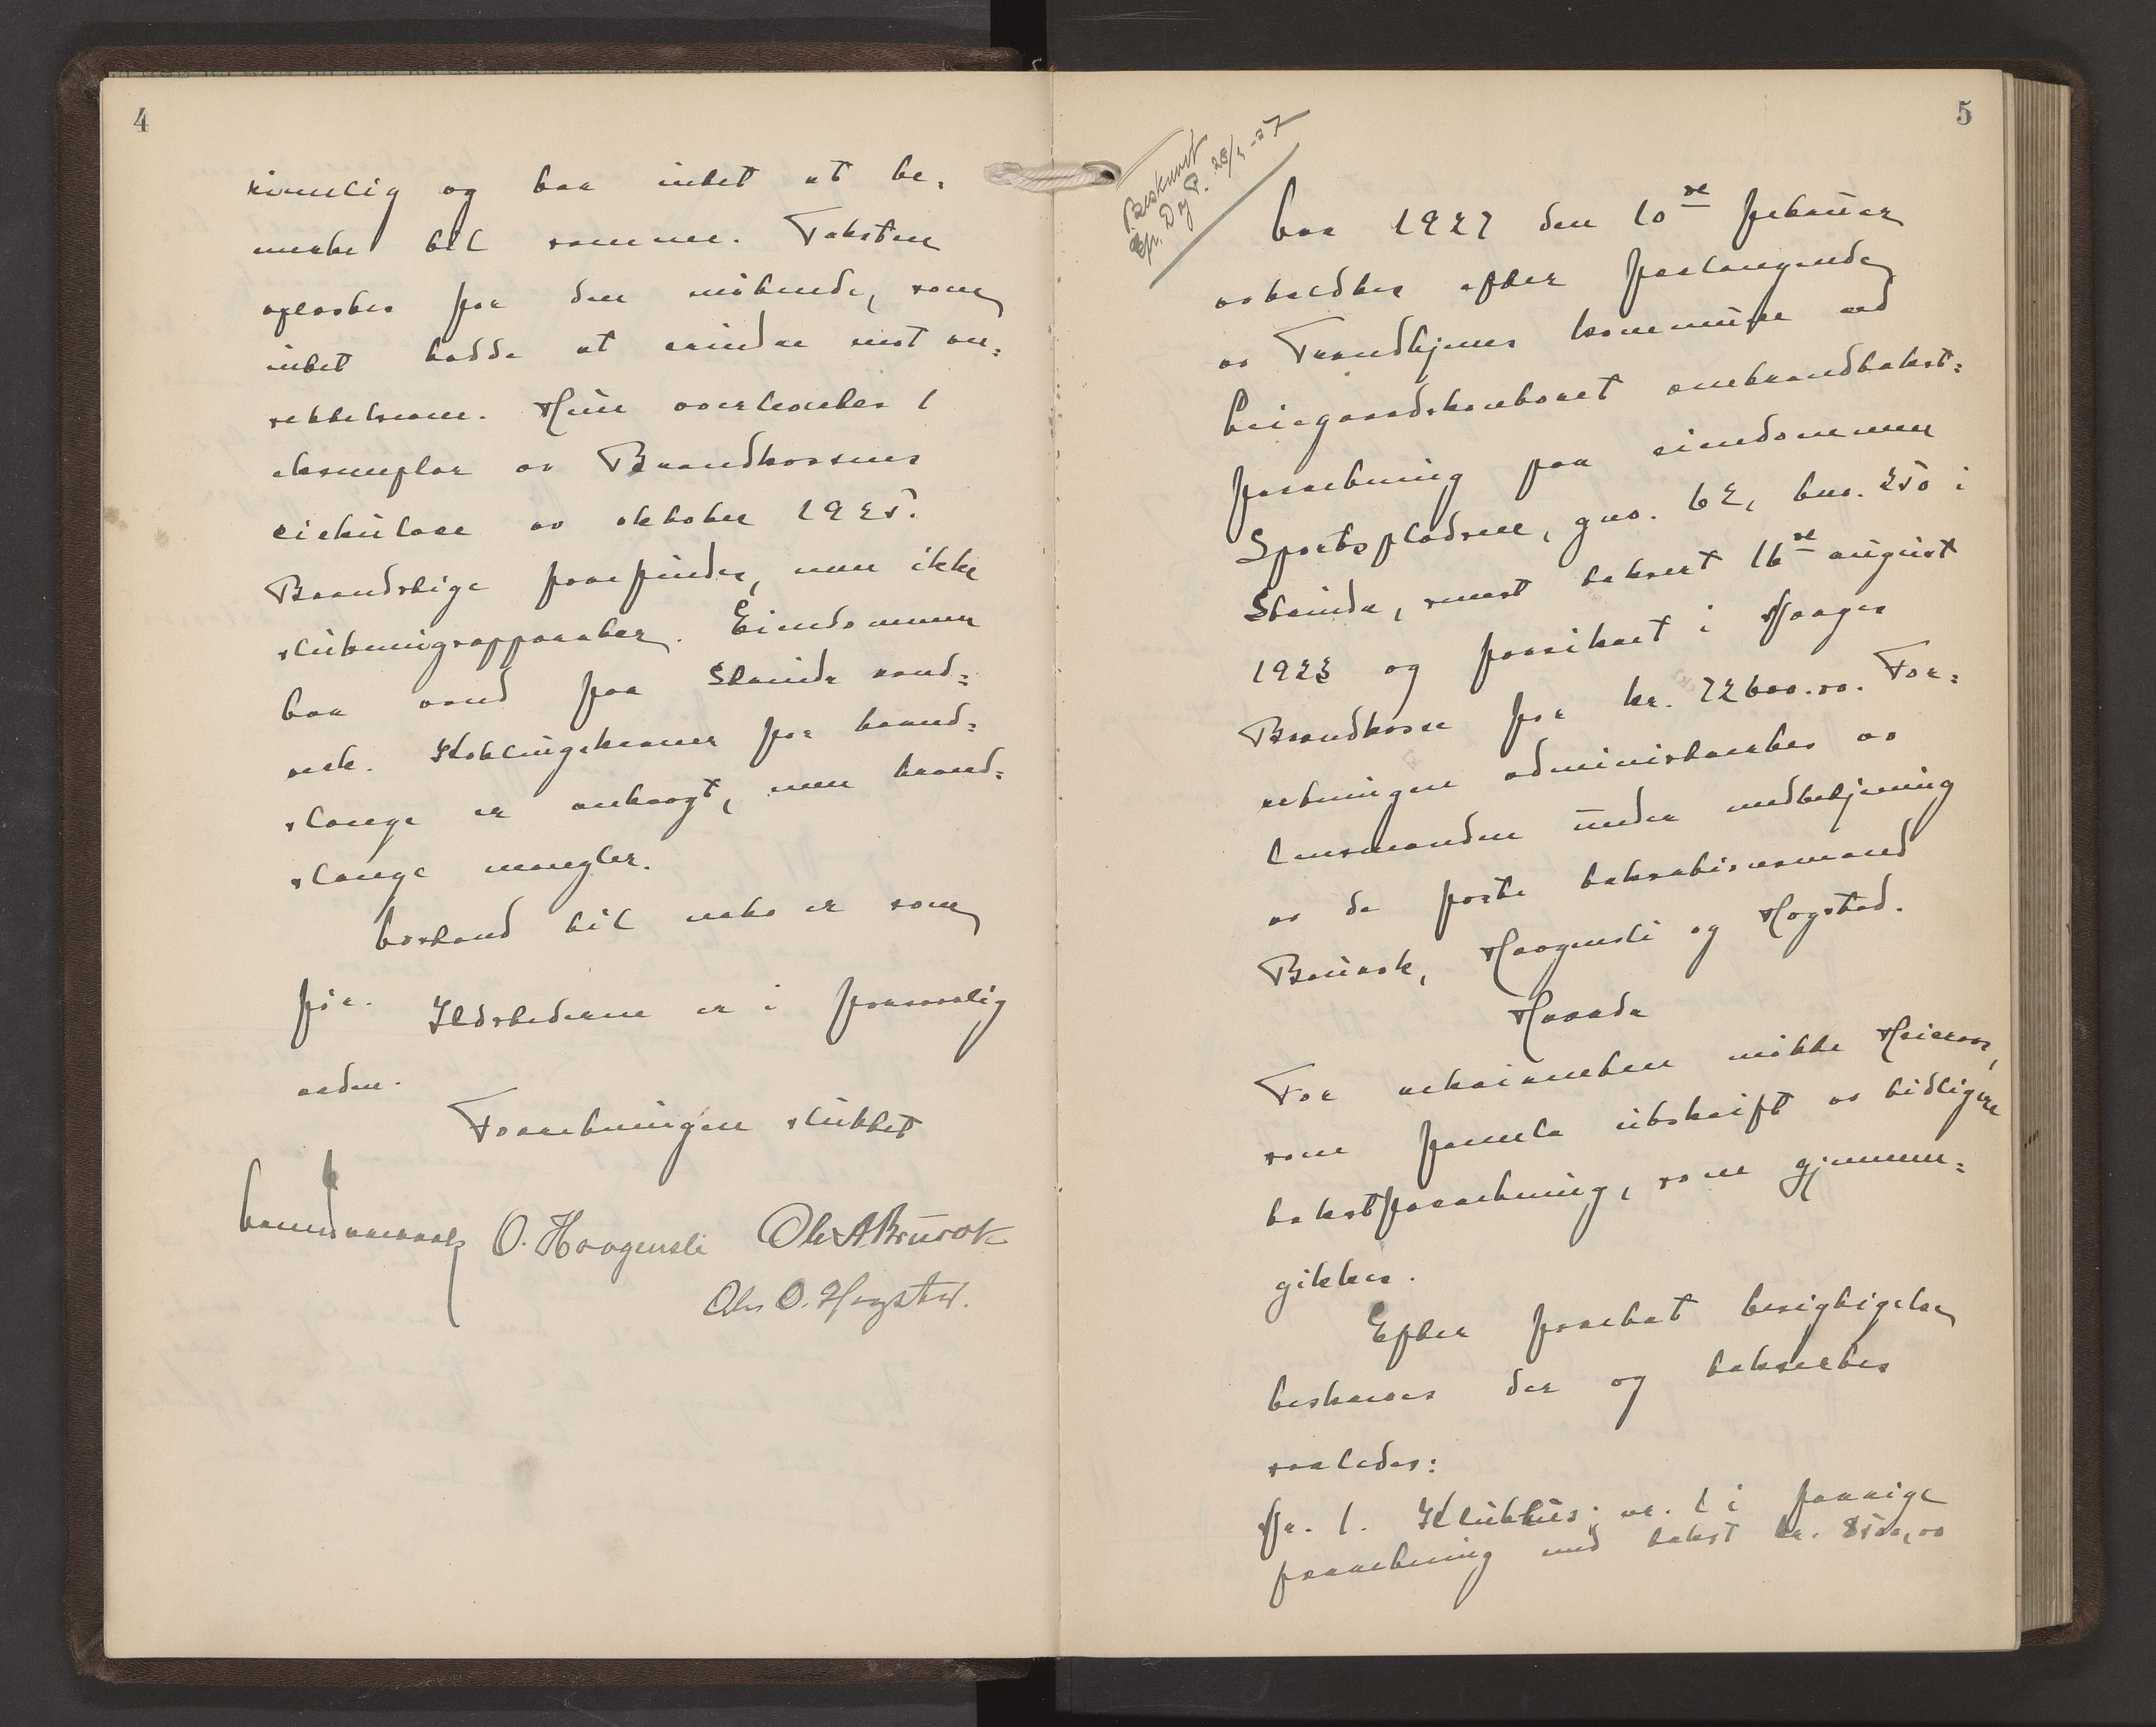 4
rimelig og har intet at be=
merke til samme. Taksten
oplæstes for den møtende, som
intet hadde at erindre mot an=
sættelserne. Hun overleveres 1
eksemplar av Brandkassens
cirkulære av oktober 1925.
Brandstige forefindes, men ikke
slukningsapparater. Eiendommen
har vand fra Strinda vand=
verk. Koblingskraner for brand=
slange er anbragt, men brand=
slange mangler.
Avstand til nabo er som
før. Ildstederne er i forsvarlig
orden.
Forretningen sluttet
O. Haagensli Ole A Brurok
Ole O. Hogstad.
5
Beskrevet
Gjp. Dag P. 28/2-27
Aar 1927 den 10de februar
avholdtes efter forlangende
av Trondhjems kommune ved
Leiegaardskontoret ombrandtakst=
forretning paa eiendommen
Sportspladsen, gno. 62, bno. 250 i
Strinda, senest taksert 16de august
1923 og forsikret i Norges
Brandkasse for kr. 72600.00. For=
retningen administrertes av
lensmanden under medbetjening
av de faste takstationsmænd
Brurok, Haagensli og Hogstad.
Hvorda
For rekvirenten møtte Heieraas,
som fremla utskrift av tidligere
takstforretning, som gjennem=
gikkes.
Efter foretat besigtigelse
beskreves der og taksertes
saaledes:
Nr. 1. Klubhus; nr. 1 i forrige
forretning med takst kr. 8500,00